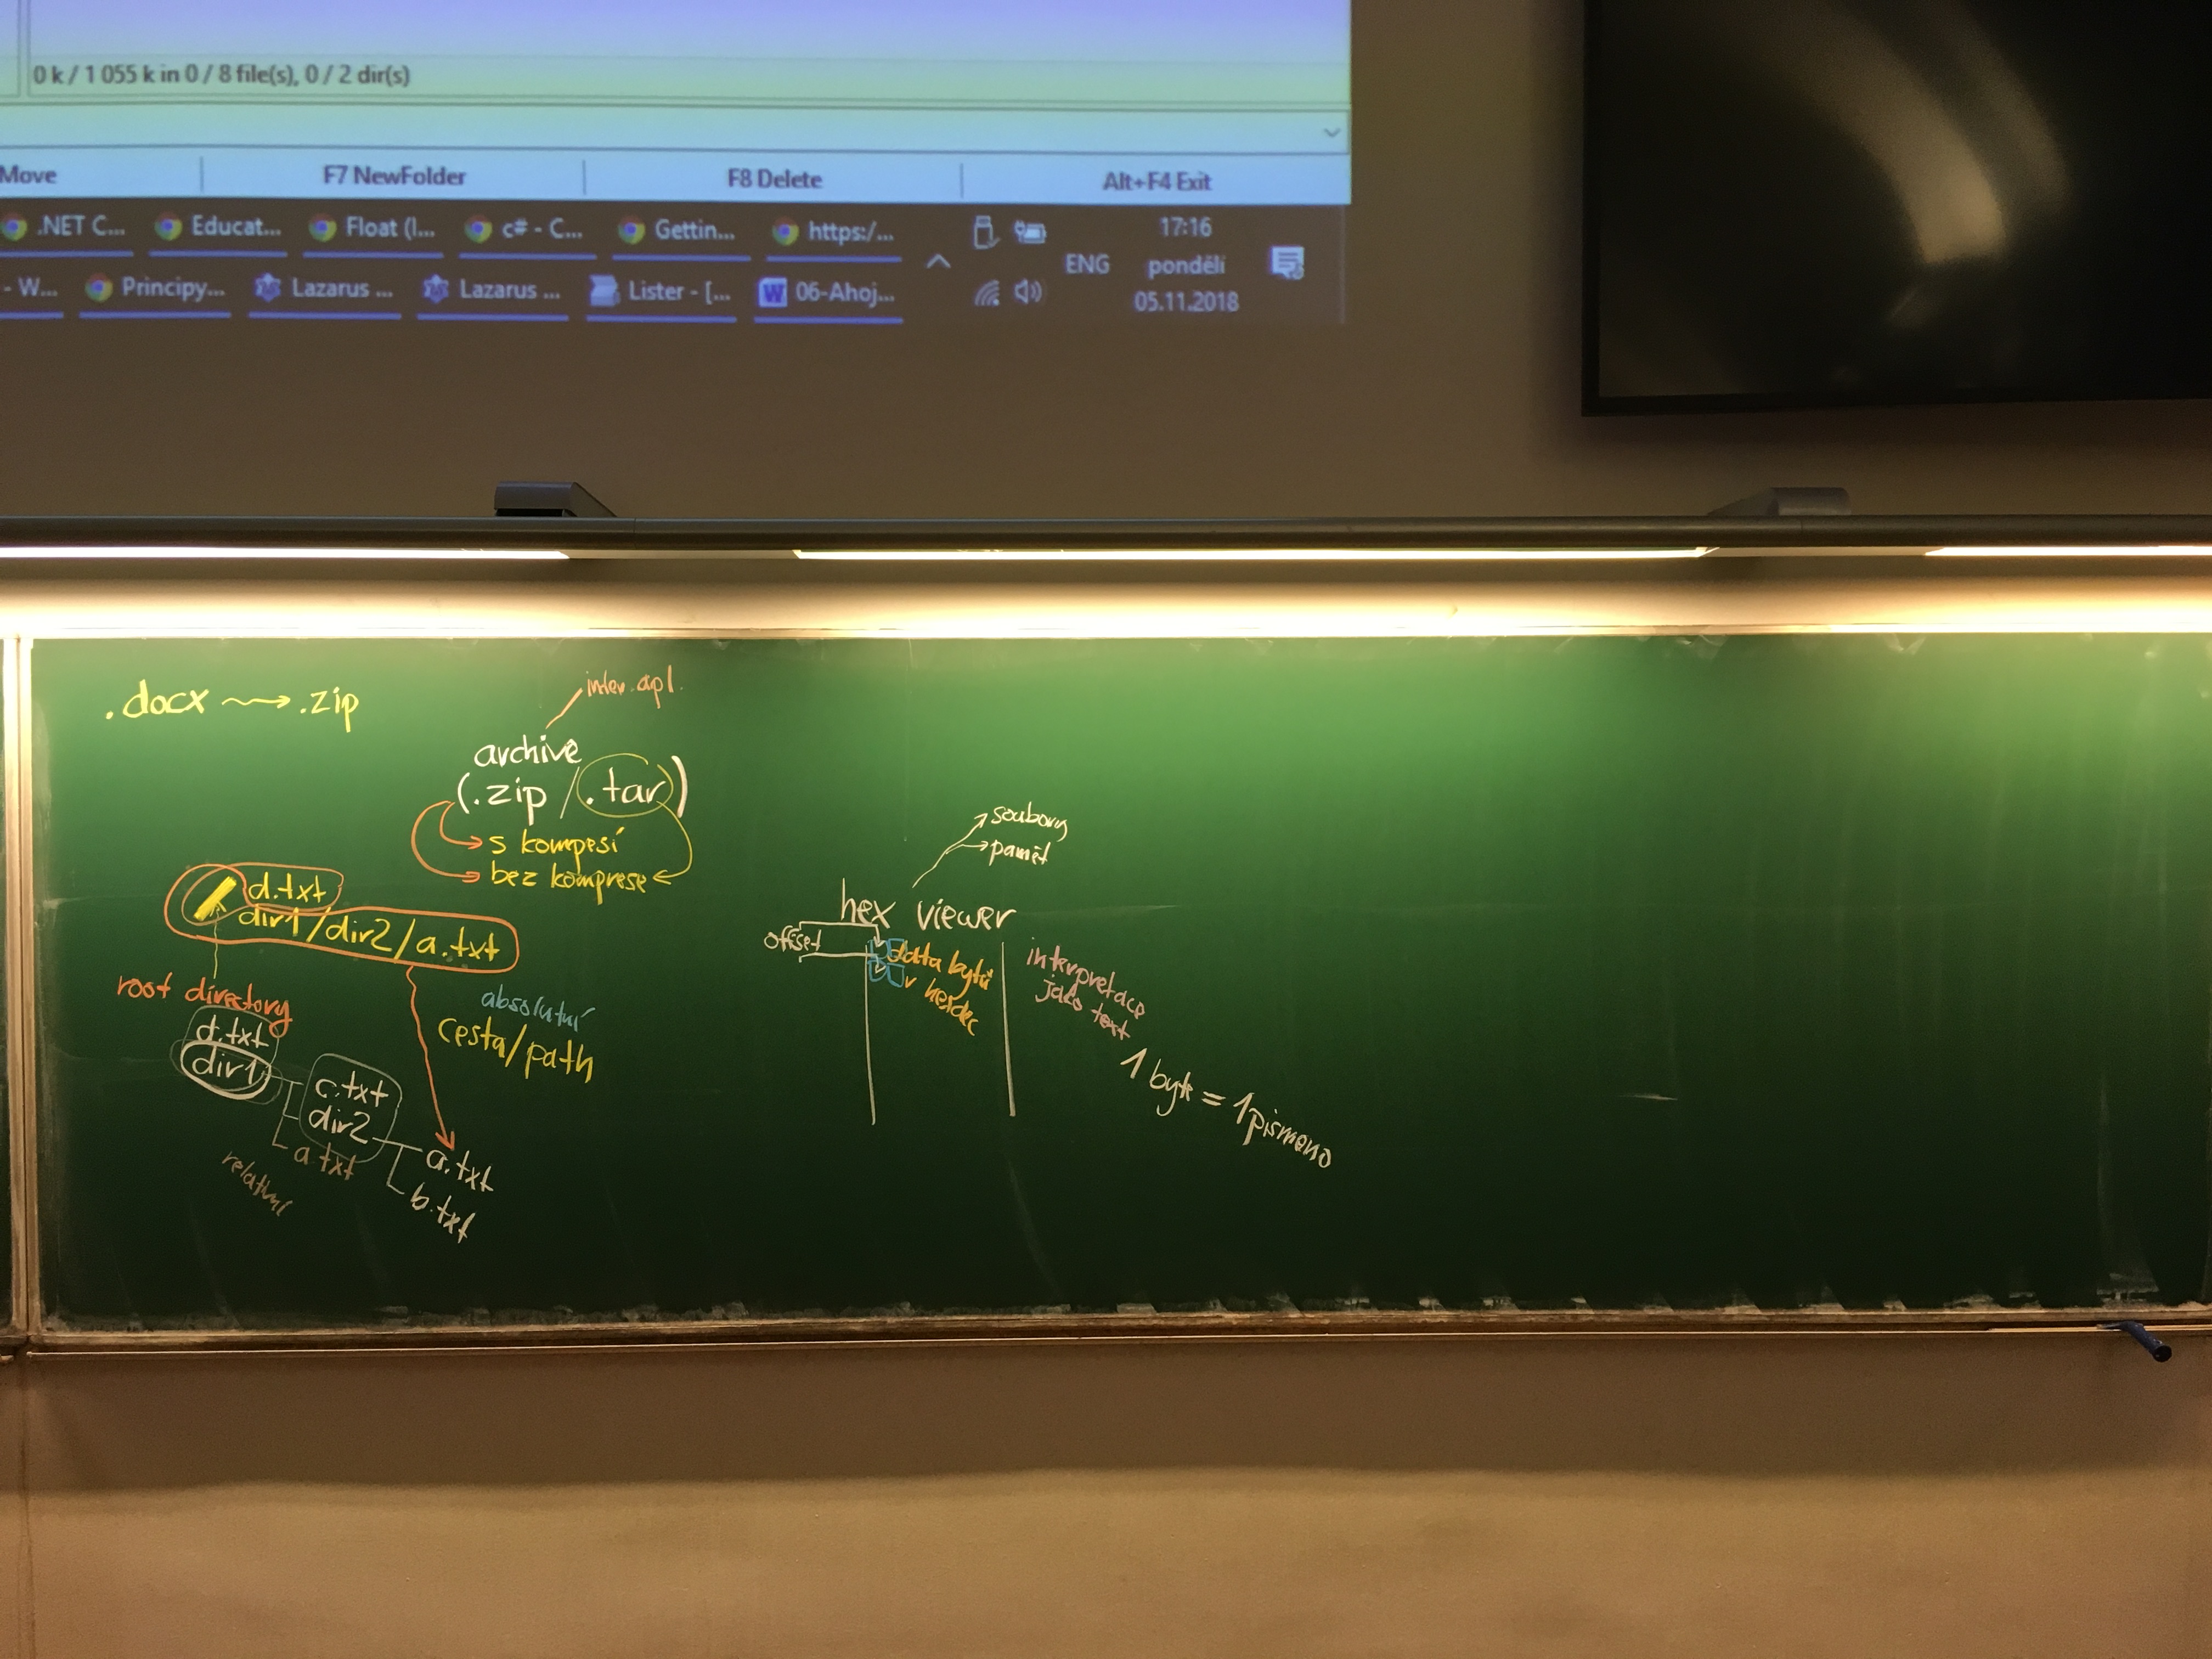 0 k / 1 055 k in 0 / 8 file(s), 0 / 2 dir(s)
Move
F7 NewFolder
F8 Delete
Alt+F4 Exit
.NET C...
Educat...
Float (I...
c# - C...
Gettin...
https:/...
- W...
Principy...
Lazarus ...
Lazarus ...
Lister - [...
06-Ahoj...
ENG
17:16
pondělí
05.11.2018
.docx → .zip
inter. apl.
archive
(.zip / .tar)
s kompesí
bez komprese
/ d.txt
dir1/dir2/a.txt
root directory
d.txt
dir1
c.txt
dir2
a.txt
relativní
a.txt
b.txt
absolutní
cesta/path
soubory
paměť
hex viewer
offset
data bytů
v hexdec
interpretace
jako text
1 byte = 1 písmeno